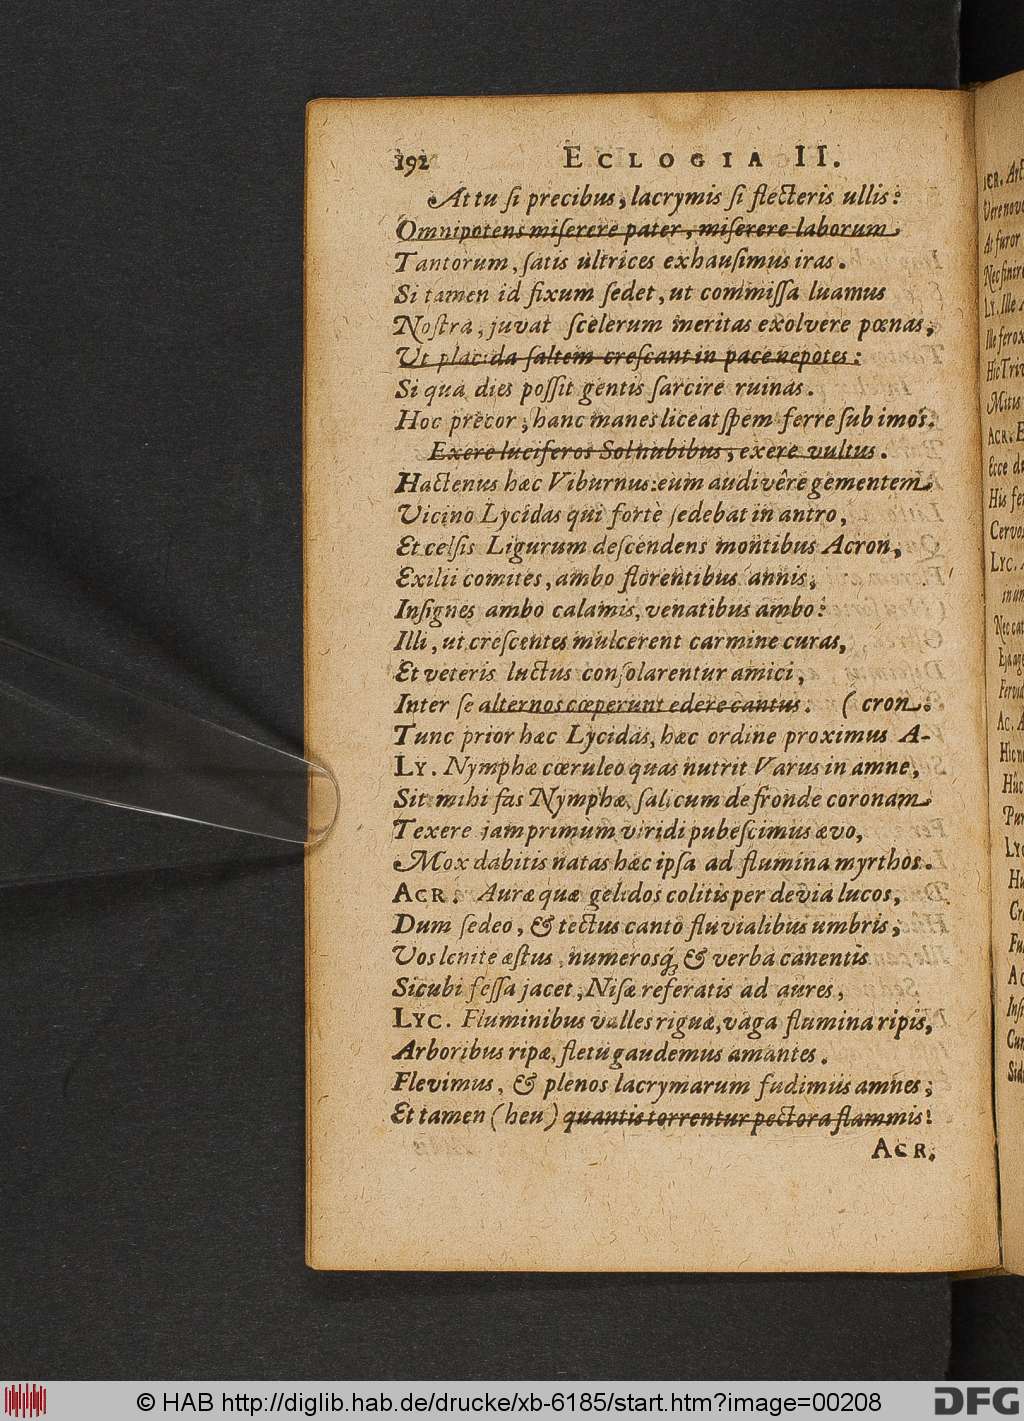 192 ECLOGIA II.
At tu ſi precibus, lacrymis ſi flecteris ullis:
Omnipotens miſerere pater, miſerere laborum
Tantorum, ſatis ultrices exhauſimus iras.
Si tamen id fixum ſedet, ut commiſſa luamus
Noſtra, juvat ſcelerum meritas exolvere pœnas,
Ut placida ſaltem creſcant in pace nepotes:
Si qua dies poſſit gentis ſarcire ruinas.
Hoc precor, hanc manes liceat ſpem ferre ſub imos.
Exere luciferos Sol nubibus, exere vultus.
Hactenus hæc Viburnus: eum audivêre gementem
Vicino Lycidas qui forte ſedebat in antro,
Et celſis Ligurum deſcendens montibus Acron,
Exilii comites, ambo florentibus annis,
Inſignes ambo calamis, venatibus ambo:
Illi, ut creſcentes mulcerent carmine curas,
Et veteris luctus conſolarentur amici,
Inter ſe alternos cœperunt edere cantus. (cron.
Tunc prior hæc Lycidas, hæc ordine proximus A-
LY. Nymphæ cœruleo quas nutrit Varus in amne,
Sit mihi fas Nymphæ, ſalicum de fronde coronam
Texere jam primum viridi pubeſcimus ævo,
Mox dabitis natas hæc ipſa ad flumina myrthos.
ACR. Auræ quæ gelidos colitis per devia lucos,
Dum ſedeo, & tectus canto fluvialibus umbris,
Vos lenite æſtus, numerosq́; & verba canentis
Sicubi feſſa jacet, Niſæ referatis ad aures,
LYC. Fluminibus valles riguæ, vaga flumina ripis,
Arboribus ripæ, fletu gaudemus amantes.
Flevimus, & plenos lacrymarum fudimus amnes;
Et tamen (heu) quantis torrentur pectora flammis!
ACR.
ACR.
LY. Ille
Mitis
ACR. E
Ecce
His
Cervos
LYC.
Nec
© HAB http://diglib.hab.de/drucke/xb-6185/start.htm?image=00208
DFG